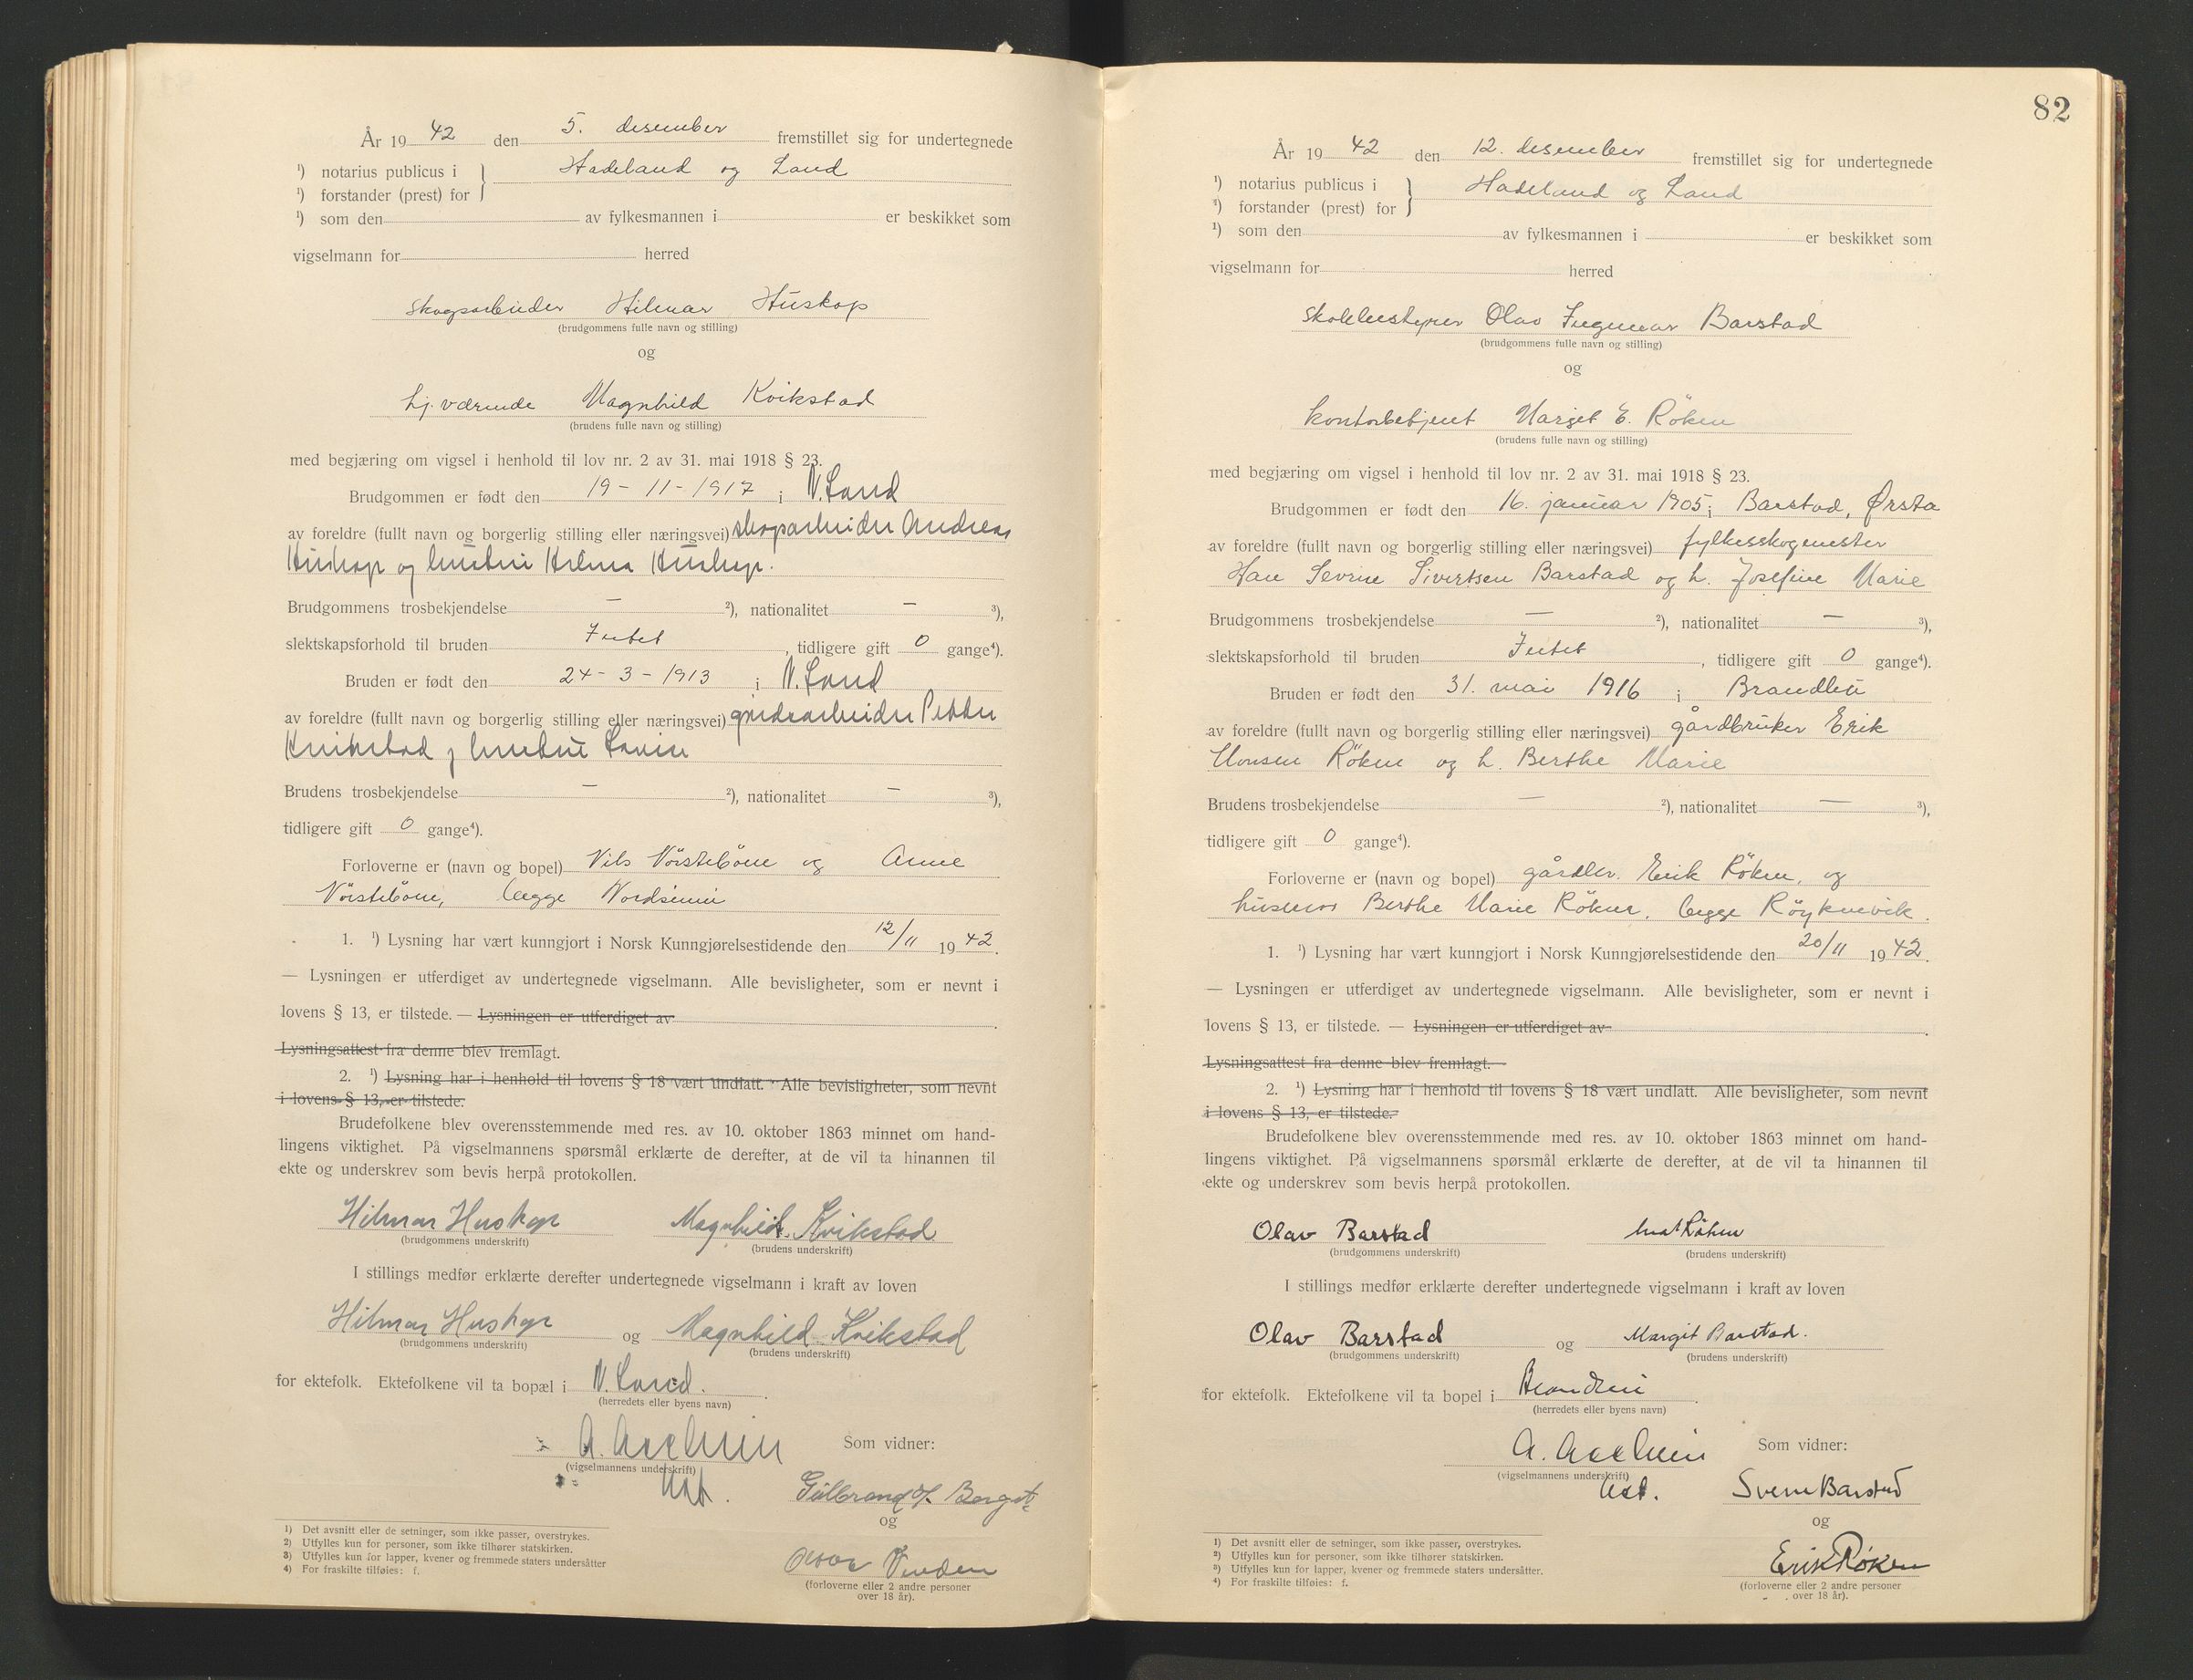 År 19 42 den 5. desember fremstillet sig for undertegnede
¹) notarius publicus i } Hadeland og Land
¹) forstander (prest) for
¹) som den av fylkesmannen i er beskikket som
vigselmann for herred
skogsarbeider Hilmar Huskop
(brudgommens fulle navn og stilling)
og
hj.værende Magnhild Kvikstad
(brudens fulle navn og stilling)
med begjæring om vigsel i henhold til lov nr. 2 av 31. mai 1918 § 23.
Brudgommen er født den 19 - 11 - 1917 i N. Land
av foreldre (fullt navn og borgerlig stilling eller næringsvei) skogsarbeider Andreas
Huskop og hustru Helma Huskop.
Brudgommens trosbekjendelse — ²), nationalitet — ³),
slektskapsforhold til bruden Intet, tidligere gift 0 gange⁴).
Bruden er født den 24 - 3 - 1913 i N. Land
av foreldre (fullt navn og borgerlig stilling eller næringsvei) Petter
Kvikstad og hustru Lovise
Brudens trosbekjendelse — ²), nationalitet — ³),
tidligere gift 0 gange⁴).
Forloverne er (navn og bopel) Nils Nörsteböue og Anne
Nörsteböue, begge Nordsinni
1. ¹) Lysning har vært kunngjort i Norsk Kunngjørelsestidende den 12/11 19 42.
— Lysningen er utferdiget av undertegnede vigselmann. Alle bevisligheter, som er nevnt i
lovens § 13, er tilstede. — Lysningen er utferdiget av
Lysningsattest fra denne blev fremlagt.
2. ¹) Lysning har i henhold til lovens § 18 vært undlatt. Alle bevisligheter, som nevnt
i lovens § 13, er tilstede.
Brudefolkene blev overensstemmende med res. av 10. oktober 1863 minnet om hand-
lingens viktighet. På vigselmannens spørsmål erklærte de derefter, at de vil ta hinannen til
ekte og underskrev som bevis herpå protokollen.
Hilmar Huskop Magnhild Kvikstad
(brudgommens underskrift) (brudens underskrift)
I stillings medfør erklærte derefter undertegnede vigselmann i kraft av loven
Hilmar Huskop og Magnhild Kvikstad
(brudgommens underskrift) (brudens underskrift)
for ektefolk. Ektefolkene vil ta bopæl i N. Land.
(herredets eller byens navn)
A. Som vidner:
(vigselmannens underskrift)
Gulbrand
og
(forloverne eller 2 andre personer
over 18 år).
1) Det avsnitt eller de setninger, som ikke passer, overstrykes.
2) Utfylles kun for personer, som ikke tilhører statskirken.
3) Utfylles kun for lapper, kvener og fremmede staters undersåtter
4) For fraskilte tilføies: f.
82
År 19 42 den 12. desember fremstillet sig for undertegnede
¹) notarius publicus i } Hadeland og Land
¹) forstander (prest) for
¹) som den av fylkesmannen i er beskikket som
vigselmann for herred
skolebestyrer Olav Ingmar Barstad
(brudgommens fulle navn og stilling)
og
kontorbetjent Marget E. Röken
(brudens fulle navn og stilling)
med begjæring om vigsel i henhold til lov nr. 2 av 31. mai 1918 § 23.
Brudgommen er født den 16. januar 1905 i Barstad, Ørsta
av foreldre (fullt navn og borgerlig stilling eller næringsvei) fylkesskogmester
Hans Severin Sivertsen Barstad og h. Josefine Marie
Brudgommens trosbekjendelse — ²), nationalitet — ³),
slektskapsforhold til bruden Intet, tidligere gift 0 gange⁴).
Bruden er født den 31. mai 1916 i Brandbu
av foreldre (fullt navn og borgerlig stilling eller næringsvei) gårdbruker Erik
Monsen Röken og h. Berthe Marie
Brudens trosbekjendelse — ²), nationalitet — ³),
tidligere gift 0 gange⁴).
Forloverne er (navn og bopel) gårdbr. Erik Röken, og
husmor Berthe Marie Röken, begge Röykenvik.
1. ¹) Lysning har vært kunngjort i Norsk Kunngjørelsestidende den 20/11 19 42.
— Lysningen er utferdiget av undertegnede vigselmann. Alle bevisligheter, som er nevnt i
lovens § 13, er tilstede. — Lysningen er utferdiget av
Lysningsattest fra denne blev fremlagt.
2. ¹) Lysning har i henhold til lovens § 18 vært undlatt. Alle bevisligheter, som nevnt
i lovens § 13, er tilstede.
Brudefolkene blev overensstemmende med res. av 10. oktober 1863 minnet om hand-
lingens viktighet. På vigselmannens spørsmål erklærte de derefter, at de vil ta hinannen til
ekte og underskrev som bevis herpå protokollen.
Olav Barstad Röken
(brudgommens underskrift) (brudens underskrift)
I stillings medfør erklærte derefter undertegnede vigselmann i kraft av loven
Olav Barstad og Margit Barstad.
(brudgommens underskrift) (brudens underskrift)
for ektefolk. Ektefolkene vil ta bopel i Brandbu
(herredets eller byens navn)
A. Som vidner:
(vigselmannens underskrift)
Svein Barstad
og
Erik Røken
(forloverne eller 2 andre personer
over 18 år).
¹) Det avsnitt eller de setninger, som ikke passer, overstrykes.
²) Utfylles kun for personer, som ikke tilhører statskirken.
³) Utfylles kun for lapper, kvener og fremmede staters undersåtter.
⁴) For fraskilte tilføies: f.